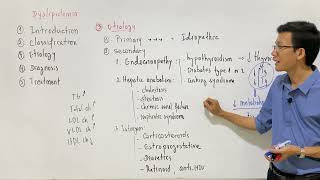 Dyslipidemia
① Introduction
② Classification
③ Etiology
④ Diagnosis
⑤ Treatment
③ Etiology
① Primary +++ → Idiopathic
② Secondary
1. Endocrinopathy
- hypothyroidism
- Diabetes type 1 n 2
- cushing syndrome
2. Hepatic
- cholestasis
- Chronic renal failure
- Nephrotic syndrome
3. Iatrogen
- Corticosteroids
- Estroprogestative
- Diuretics
- Retinoid anti-HIV
TG ↑
Total ch ↑
LDL ch ↑
VLDL ch ↑
HDL ch ↓